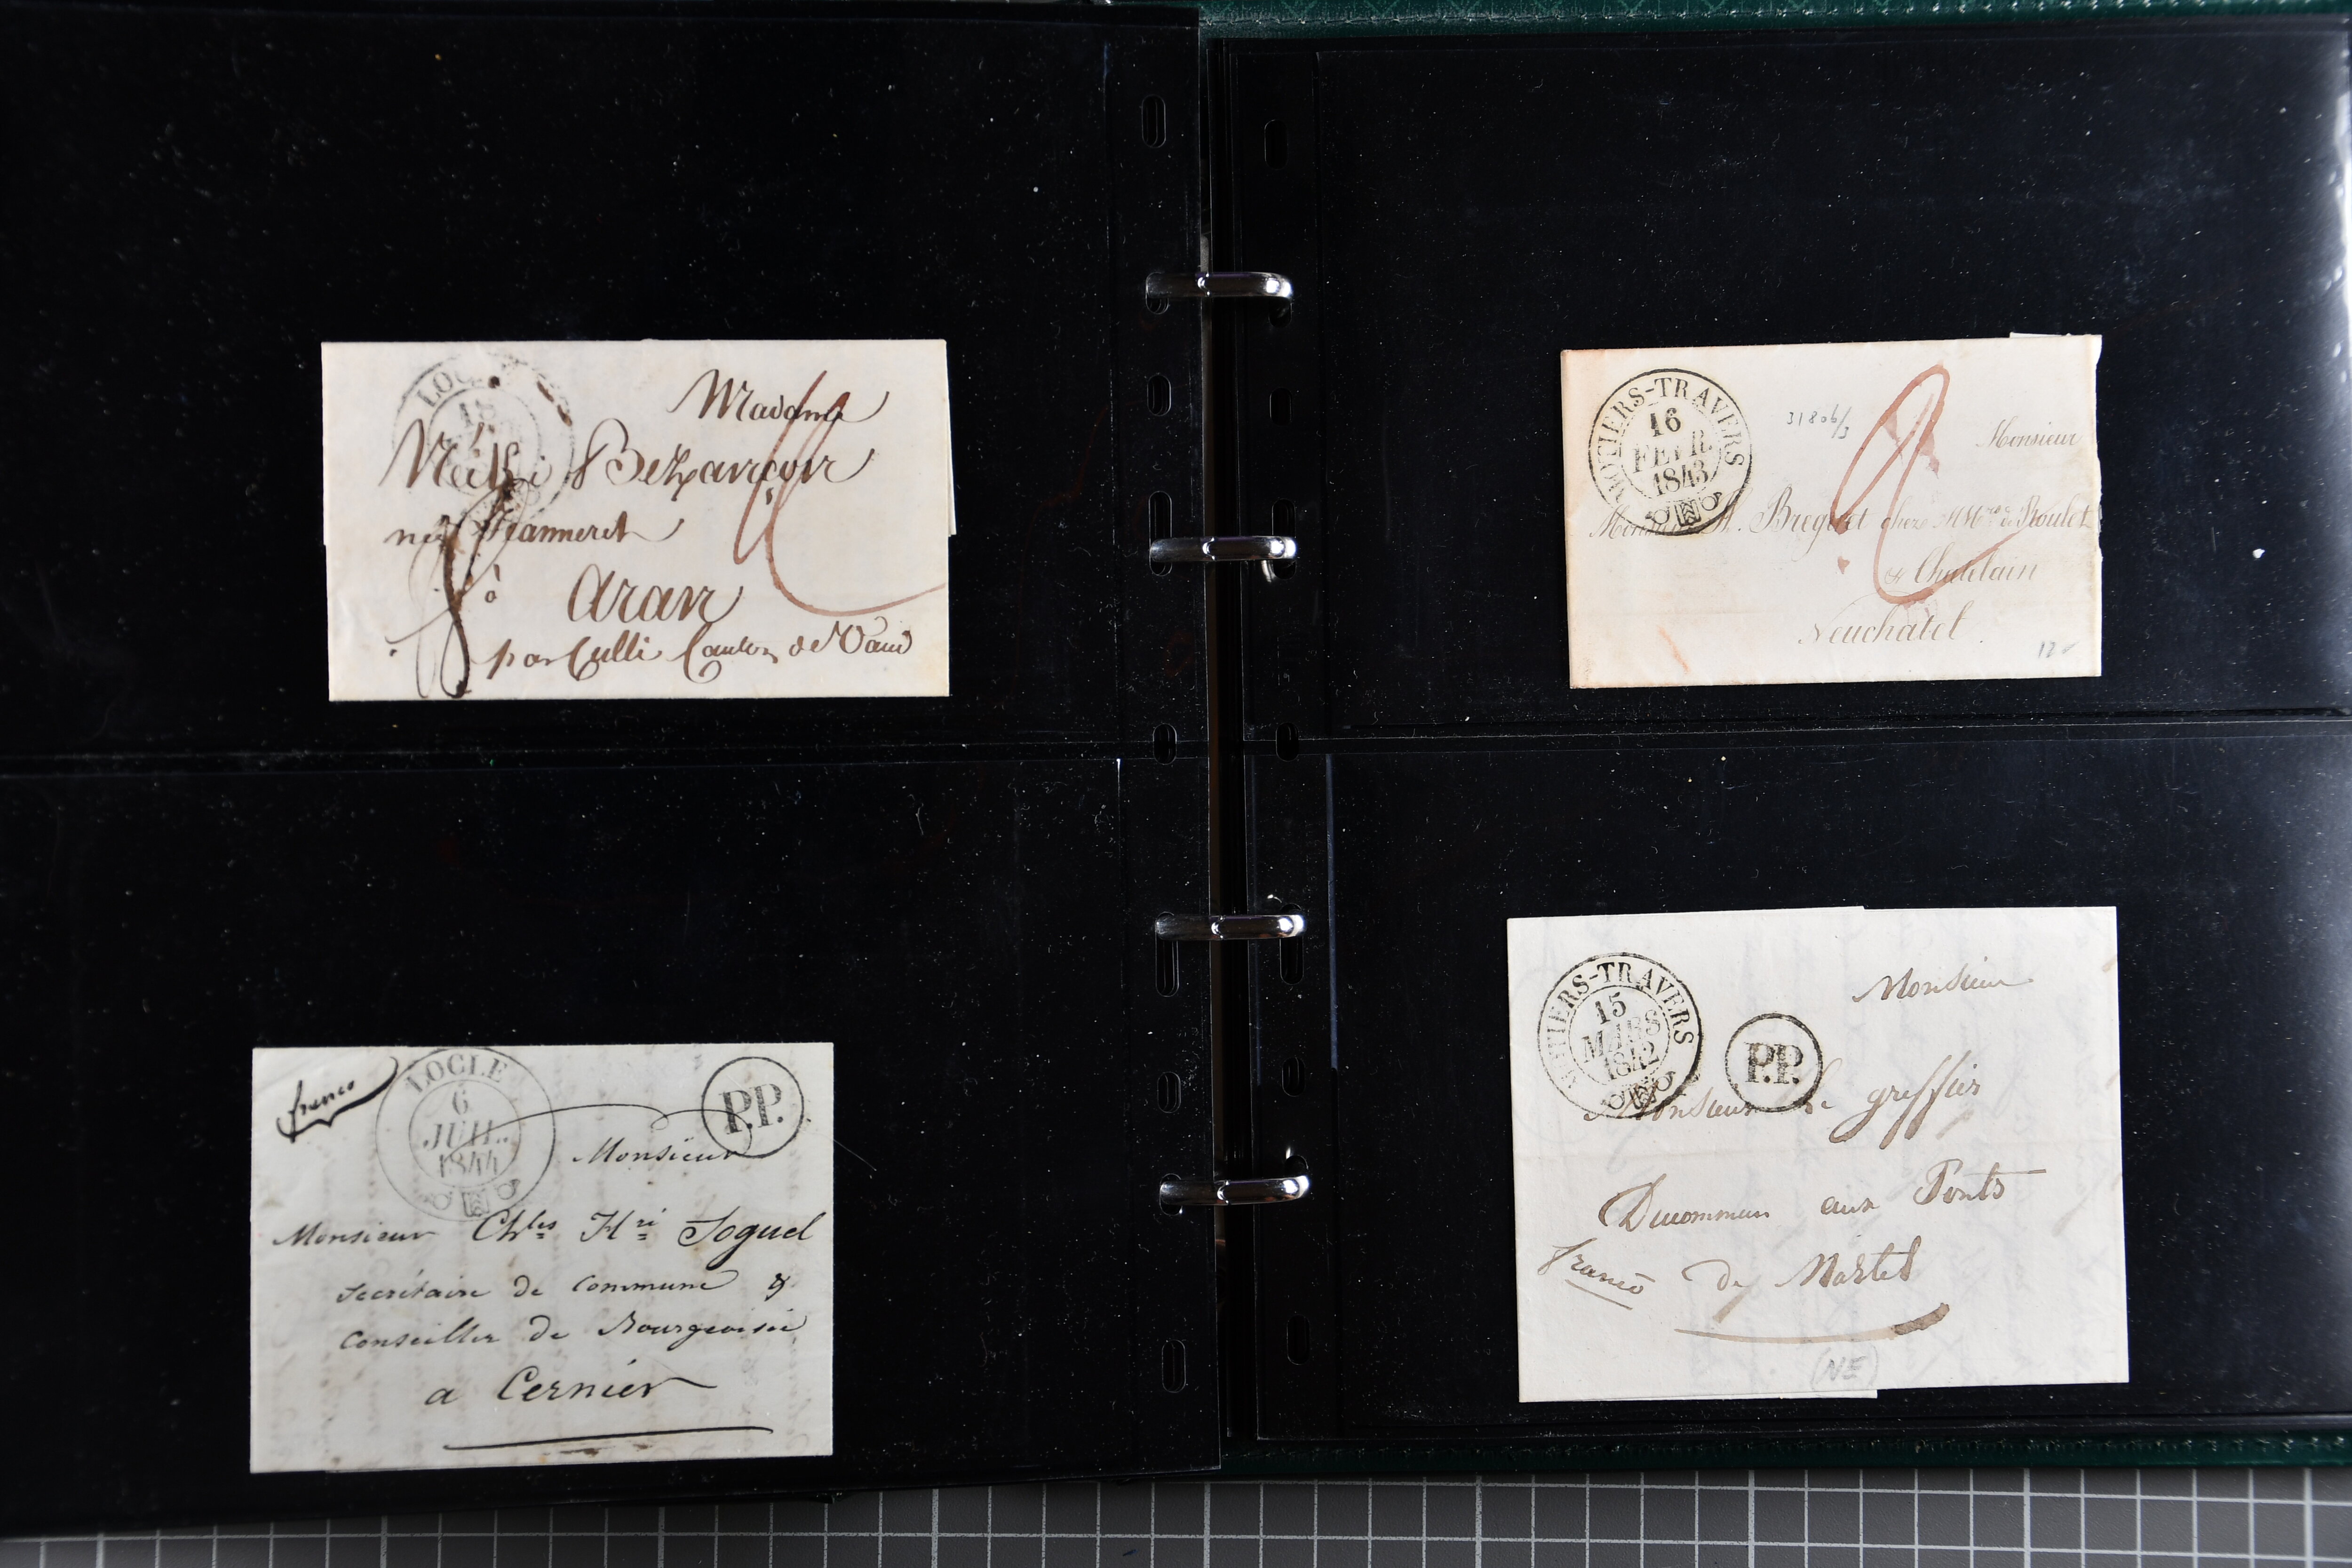 LOCLE
18
Madame
Bezancon
née Jeanneret
à
Aran
par Culli Canton de Vaud
franco
LOCLE
6
JUIL.
1844
P.P.
Monsieur
Monsieur Ch.les H.ri Soguel
Secrétaire de Commune &
Conseiller de Bourgeoisie
a Cernier
MOTIERS-TRAVERS
16
FEVR
1843
31806/3
2
Monsieur
Breguet chez Roulet
& Chatelain
Neuchâtel.
12
MOTIERS-TRAVERS
15
MARS
1842
P.P.
Monsieur
Monsieur le greffier
Ducommun aux Ponts
franco de Martel
(NE)